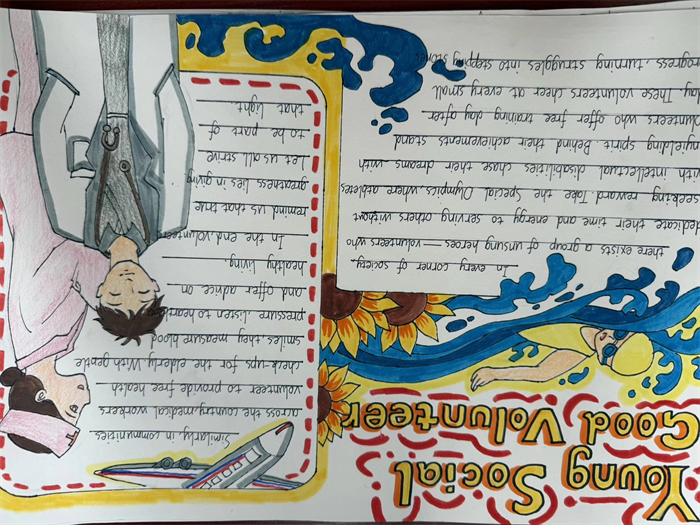 Young Social
Good Volunteer
In every corner of society,
there exists a group of unsung heroes — volunteers who
dedicate their time and energy to serving others without
seeking reward. Take the Special Olympics, where athletes
with intellectual disabilities chase their dreams with
unyielding spirit. Behind their achievements stand
volunteers who offer free training day after
day. These volunteers cheer at every small
progress, turning struggles into stepping stones
Similarly, in communities
across the country, medical workers
volunteer to provide free health
check-ups for the elderly. With gentle
smiles, they measure blood
pressure, listen to
and offer advice on
healthy living.
In the end, volunteers
remind us that true
greatness lies in giving
Let us all strive
to be part of
that light.